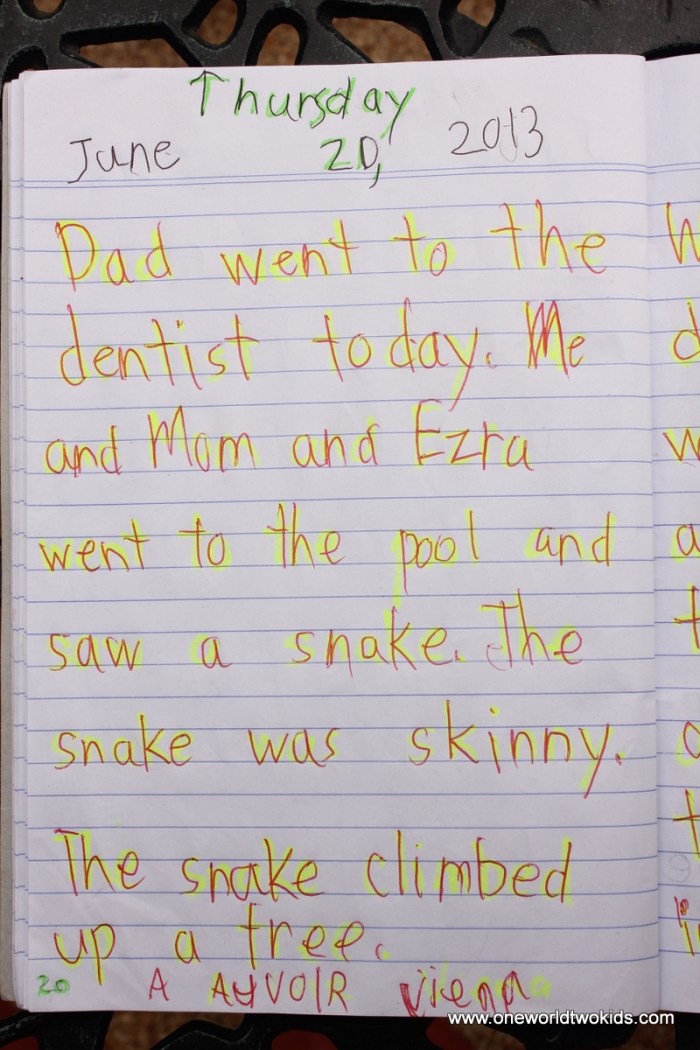 Thursday
June 20, 2013
Dad went to the
dentist today. Me
and Mom and Ezra
went to the pool and
saw a snake. The
snake was skinny.
The snake climbed
up a tree.
20 A Vienna
www.oneworldtwokids.com